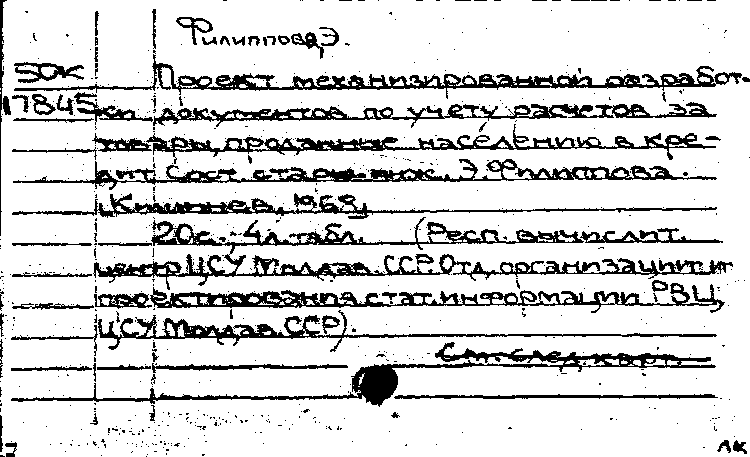 Филиппова, Э.
50к Проект механизированной разработ-
17845 ки документов по учету расчетов за
товары, проданные населению в кре-
дит. Сост. старш. инж. Э. Филиппова.
[Кишинев, 1968]
20 с.; 4 л. табл. (Респ. вычислит.
центр ЦСУ Молдав. ССР. Отд. организации и
проектирования стат. информации РВЦ
ЦСУ Молдав. ССР).
См. след. карт.
АК